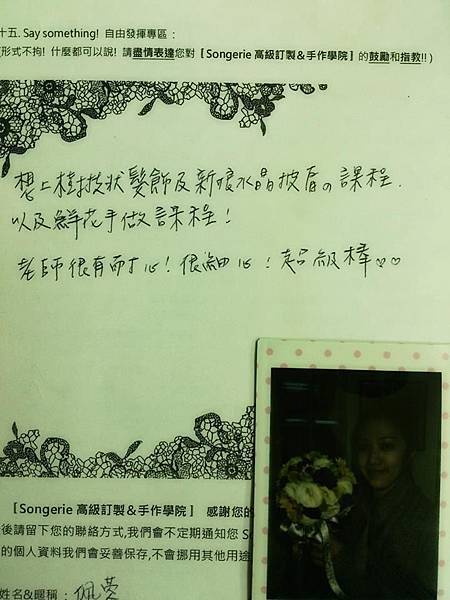 十五. Say something! 自由發揮專區：
(形式不拘! 什麼都可以說! 請盡情表達您對【Songerie 高級訂製&手作學院】的鼓勵和指教!! )
想上樹枝狀髮飾及新娘水晶披肩の課程.
以及鮮花手做課程!
老師很有耐心! 很細心! 超級棒♡♡
【Songerie 高級訂製&手作學院】 感謝您的
後請留下您的聯絡方式,我們會不定期通知您 S
的個人資料我們會妥善保存,不會挪用其他用途
姓名&暱稱：佩蓉